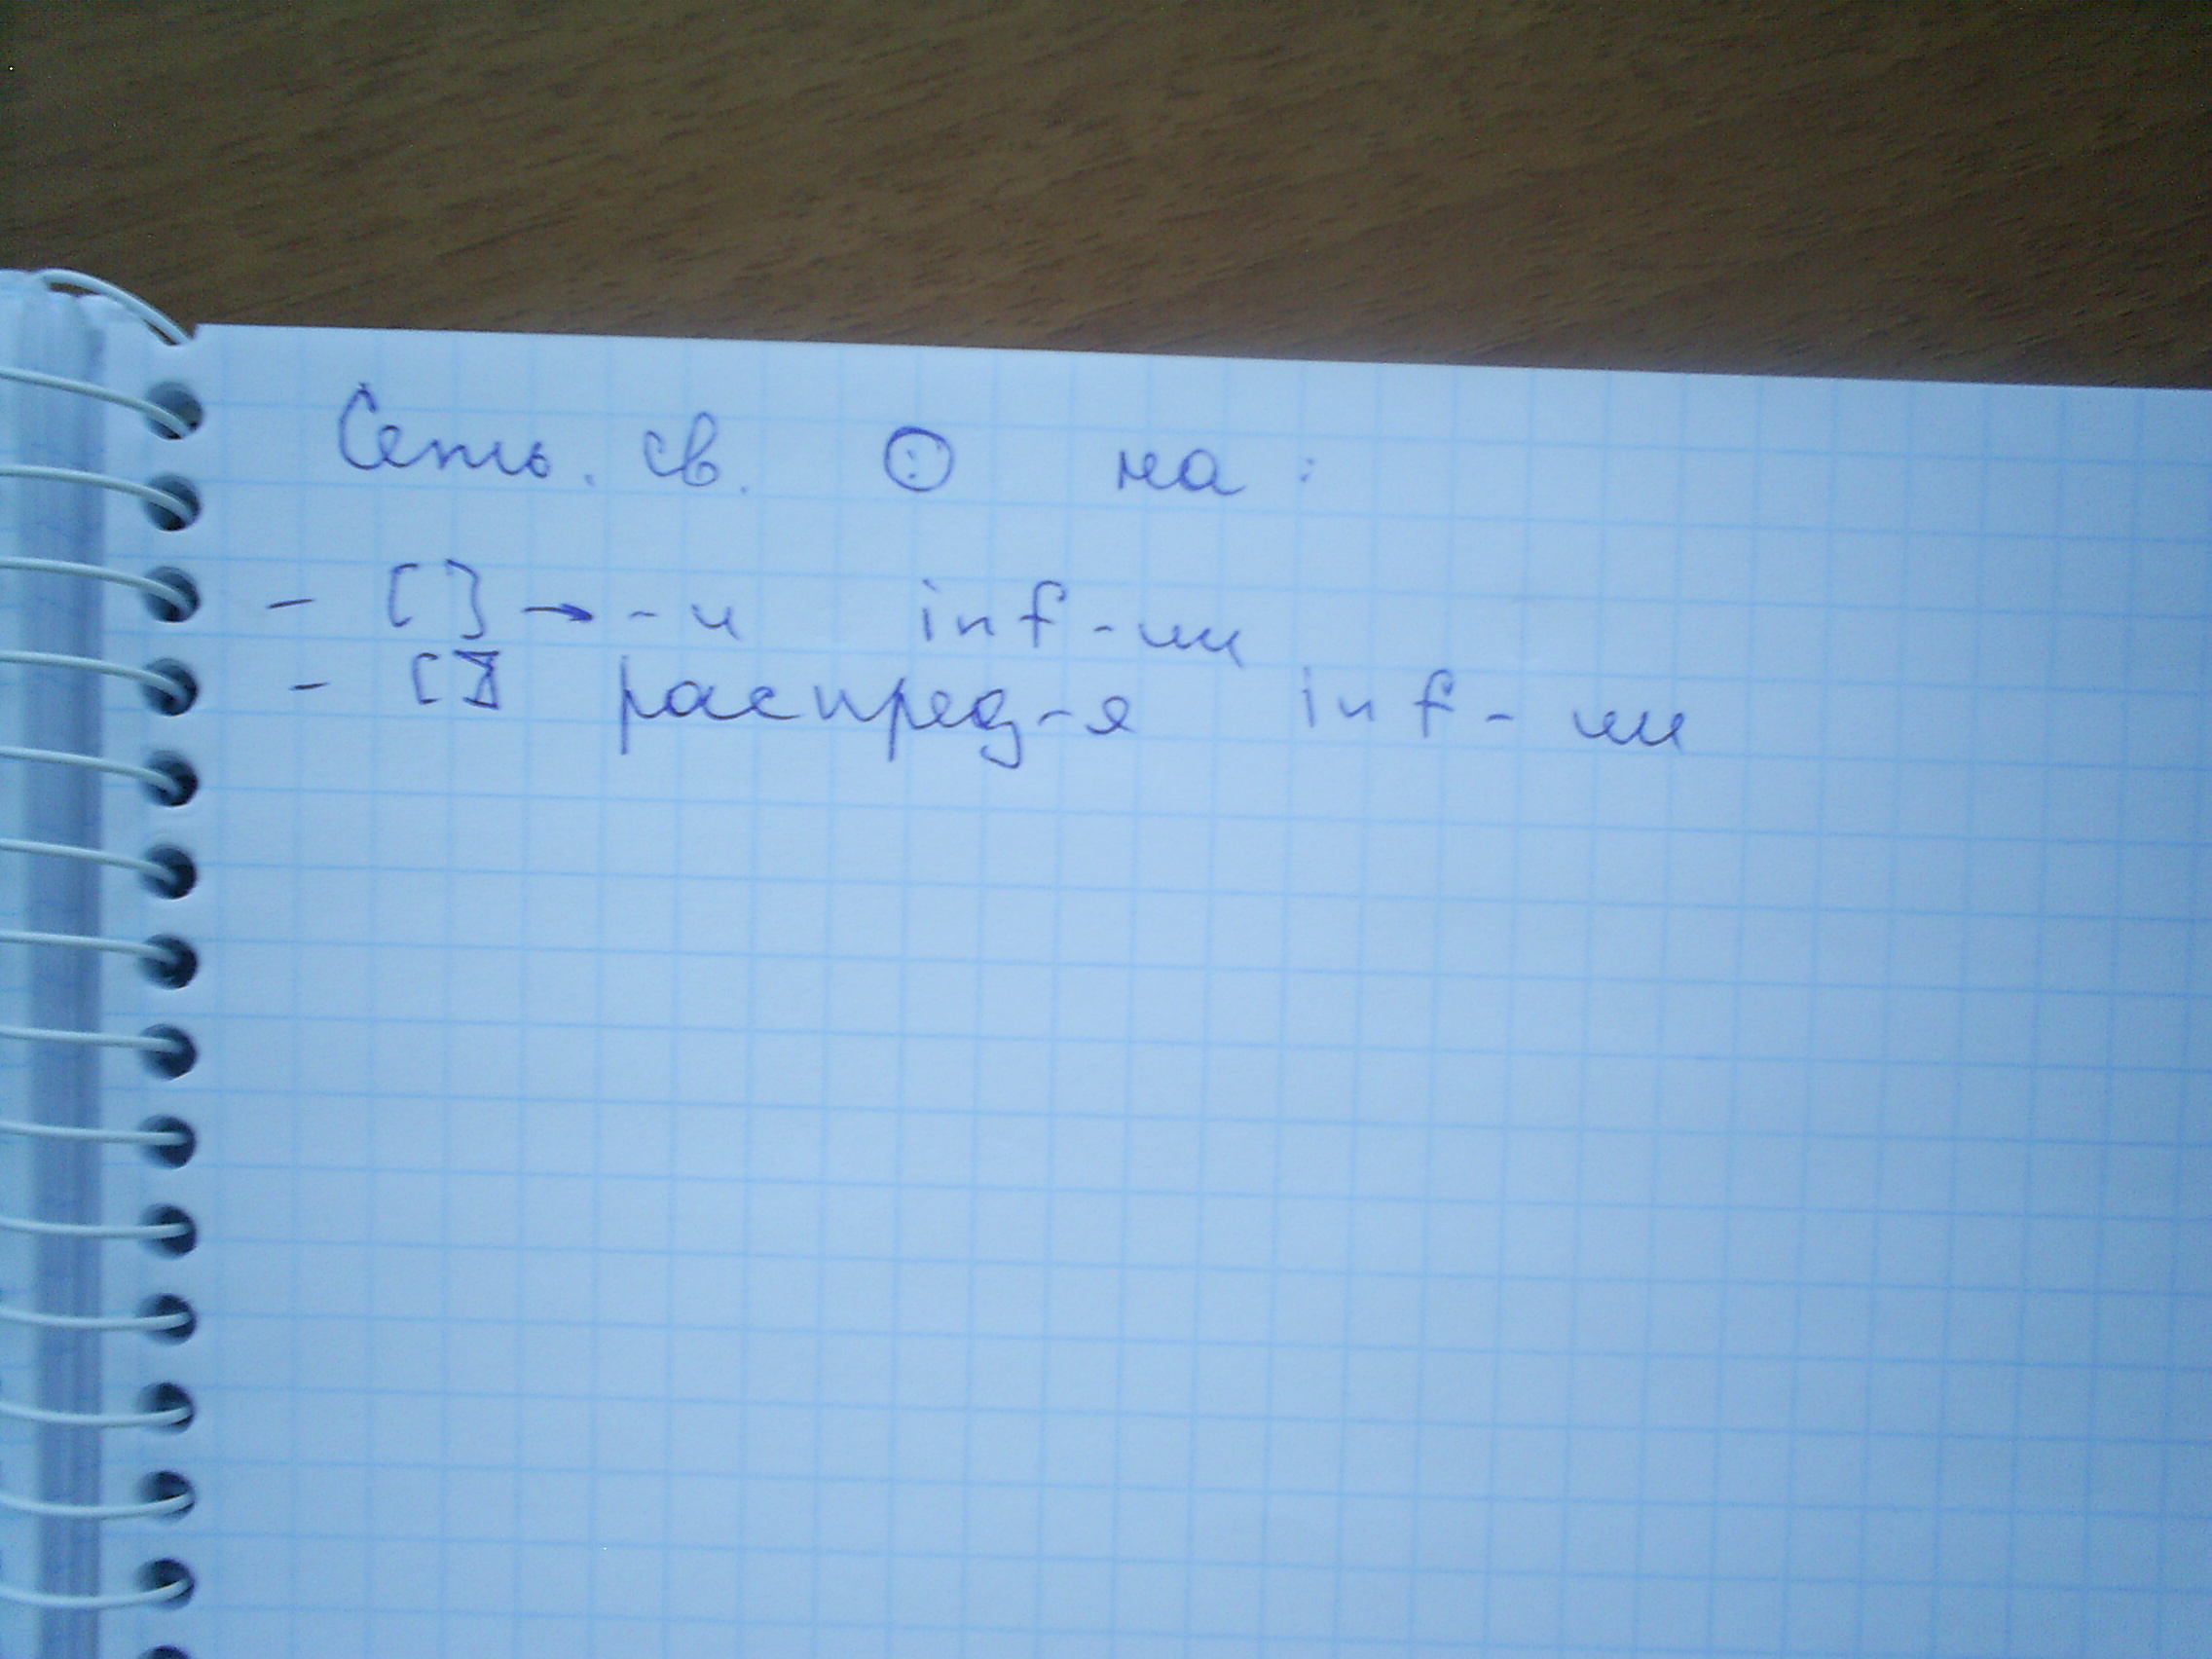 Сеть. св. ⊙ на:
- [ ] → -и inf-ии
- [ ] распред-я inf-ии